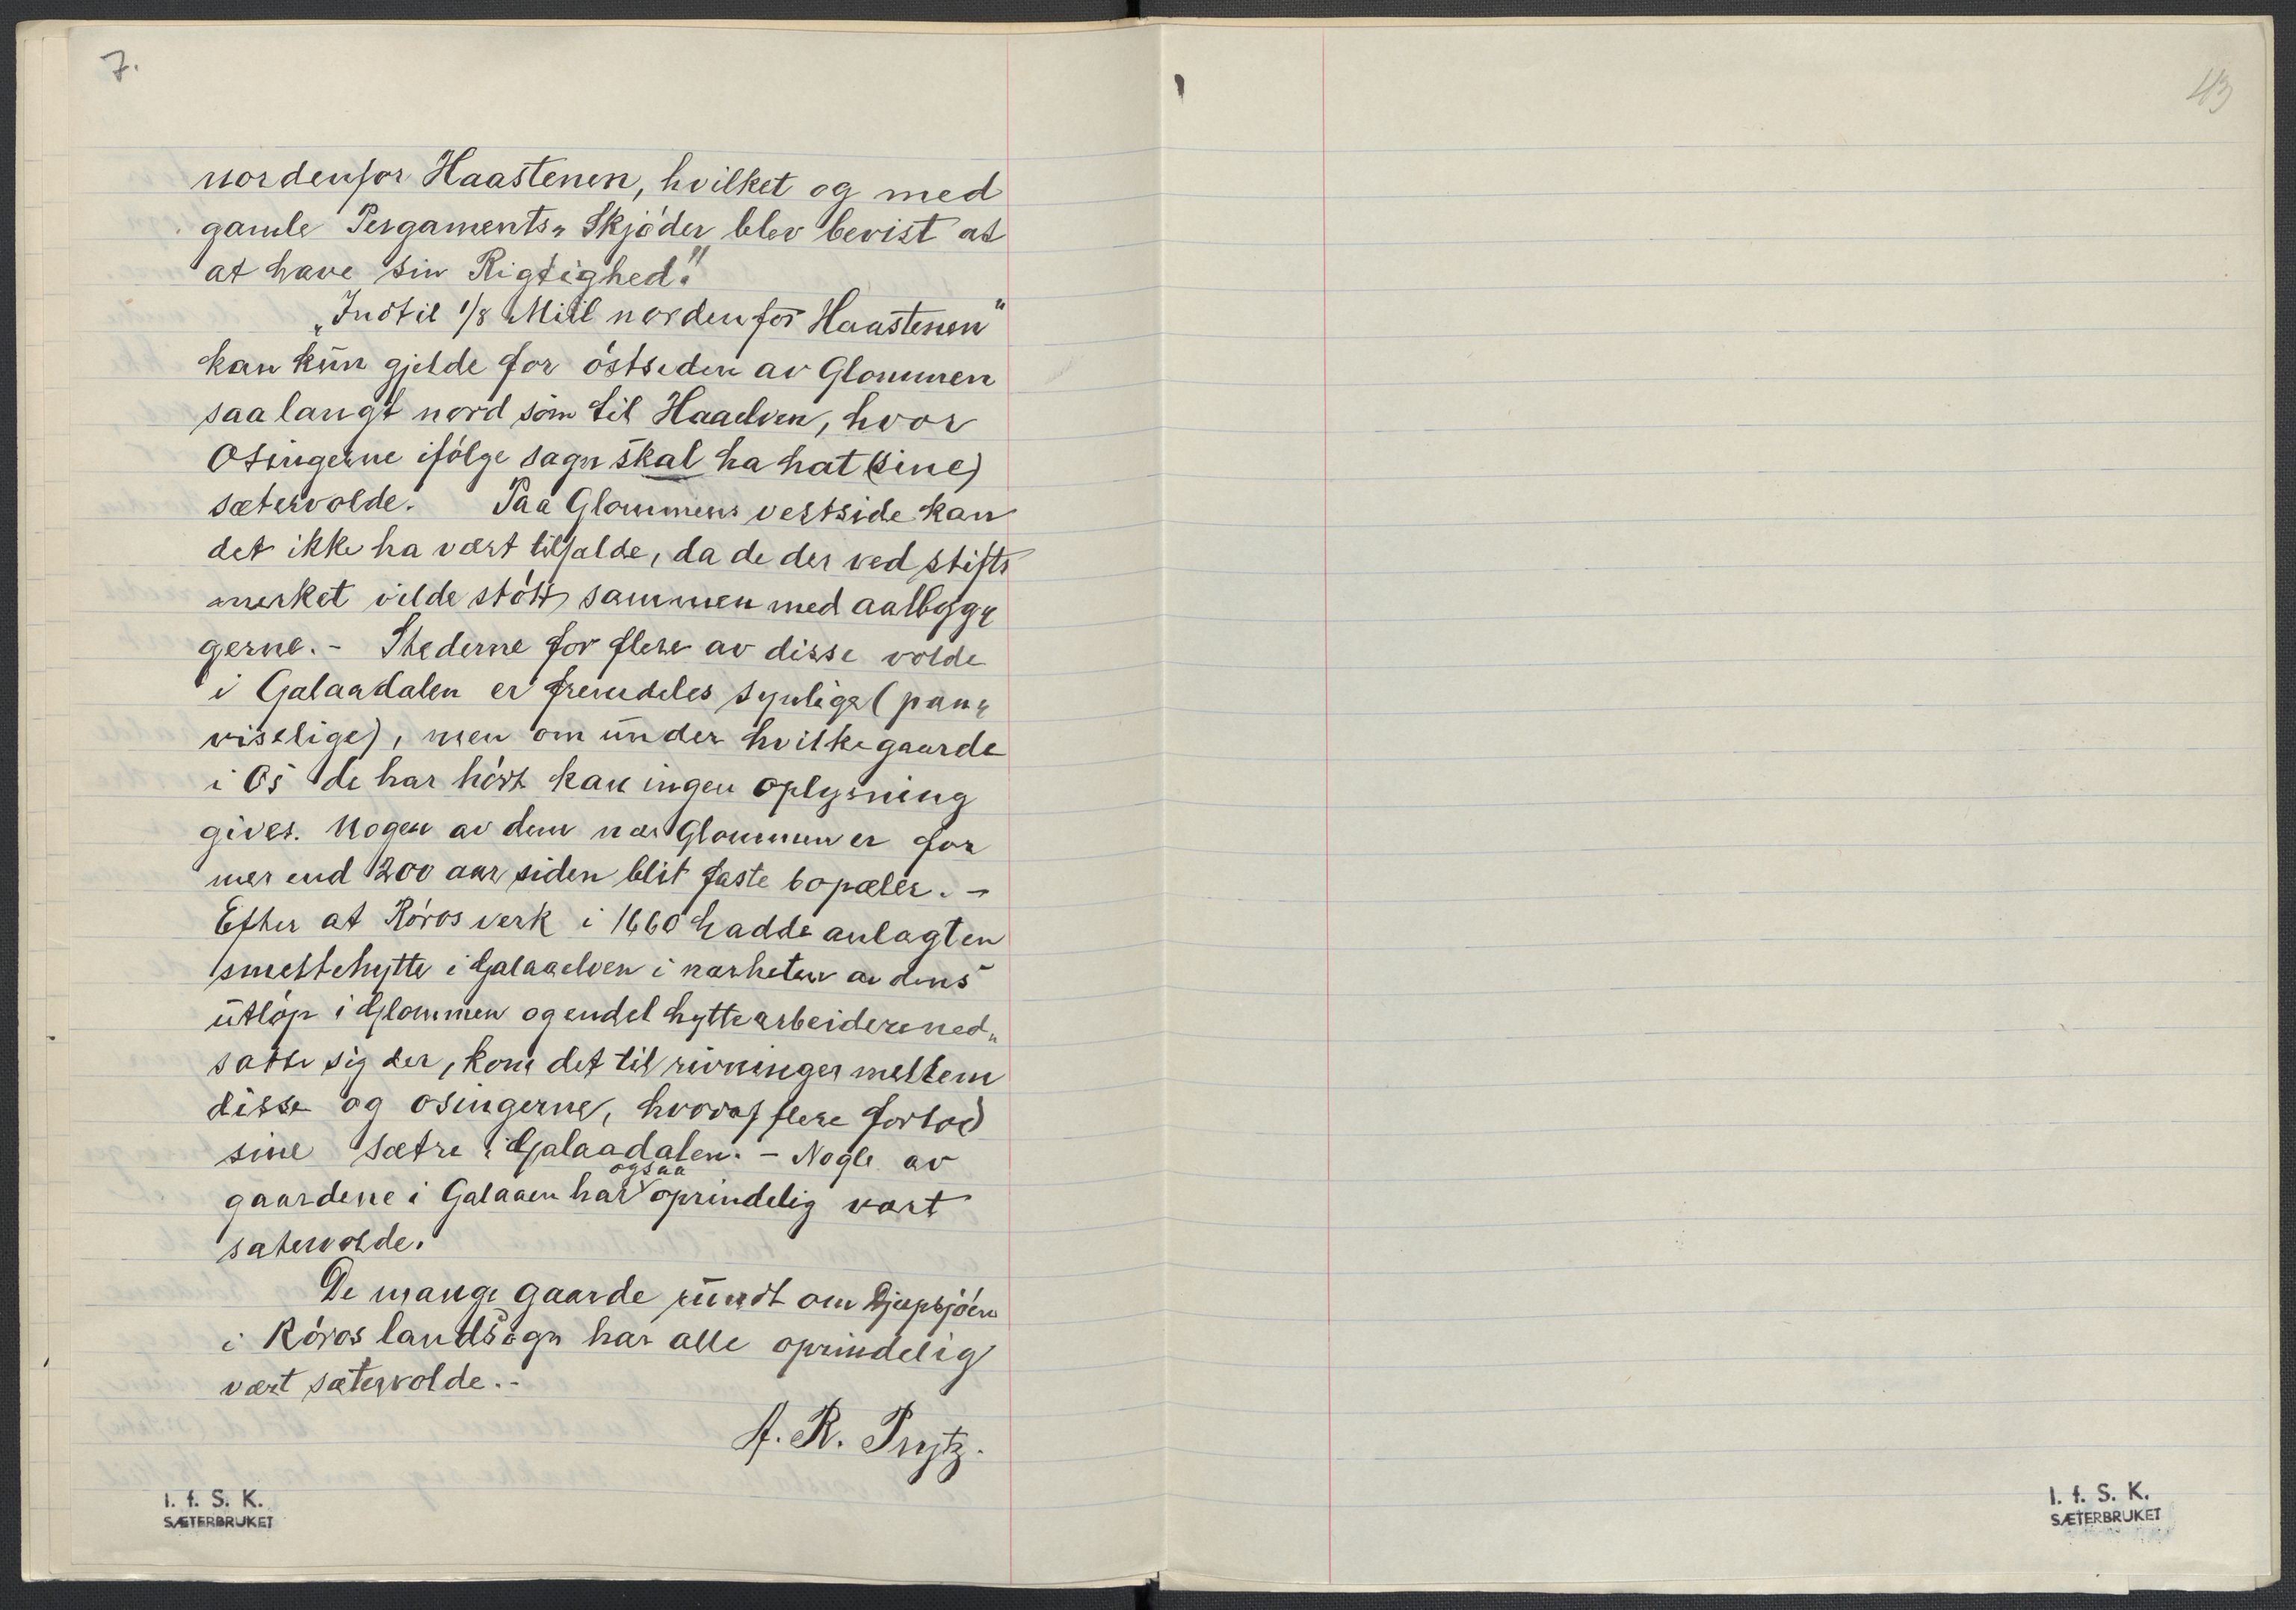 7.
43
nordenfor Haastenen, hvilket og med
gamle Pergaments„ Skjøder blev bevist at
at have sin Rigtighed."
„Indtil 1/8 Miil nordenfor Haastenen"
kan kun gjelde for østsiden av Glommen
saa langt nord som til Haaelven, hvor
Osingerne ifølge sagn skal ha hat (sine)
sætervolde. Paa Glommens vestside kan
det ikke ha vært tilfælde, da de der ved stifts
merket vilde støtt sammen med aalbygg„
gerne. - Stederne for flere av disse volde
i Galaadalen er fremdeles synlige (paa„
viselige), men om under hvilke gaarde
i Os de har hørt kan ingen oplysning
gives. Nogen av dem nær Glommen er for
mer end 200 aar siden blit faste bopæler. -
Efter at Røros verk i 1660 hadde anlagt en
smeltehytte i Galaaelven i nærheten av dens
utløp i Glommen og endel hyttearbeidere ned„
satte sig der, kom det til rivninger mellem
disse og osingerne, hvorav flere forlod
sine sætre i Galaadalen. - Nogle av
gaardene i Galaaen har ogsaa oprindelig vært
sætervolde.
De mange gaarde rundt om Djupsjøen
i Røros landsogn har alle oprindelig
vært sætervolde. -
A. R. Prytz.
I. f. S. K.
SÆTERBRUKET
I. f. S. K.
SÆTERBRUKET